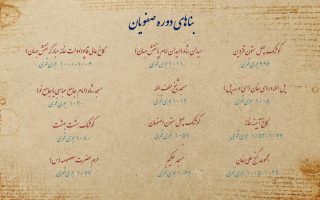 بناهای دوره صفویان
کوشک چهل ستون قزوین
۹۶۳ هجری قمری
میدان شاه (میدان امام یا نقش جهان)
۱۰۱۱ هجری قمری
کاخ عالی قاپو (دولت خانه مبارکه نقش جهان)
۱۰۰۰-۱۰۰۶ هجری قمری
پل الله وردی خان (سی و سه پل)
۱۰۰۵ هجری قمری
مسجد شیخ لطف الله
۱۰۱۲ هجری قمری
مسجد شاه (امام، جامع عباسی یا جامع نو)
۱۰۲۰ هجری قمری
کاخ آینه خانه
کوشک چهل ستون اصفهان
۱۰۵۷ هجری قمری
کوشک هشت بهشت
۱۰۸۰ هجری قمری
مجموعه گنج علی خان
مسجد حکیم
۱۰۶۷ هجری قمری
حرم حضرت معصومه (س)
۱۰۷۷ هجری قمری